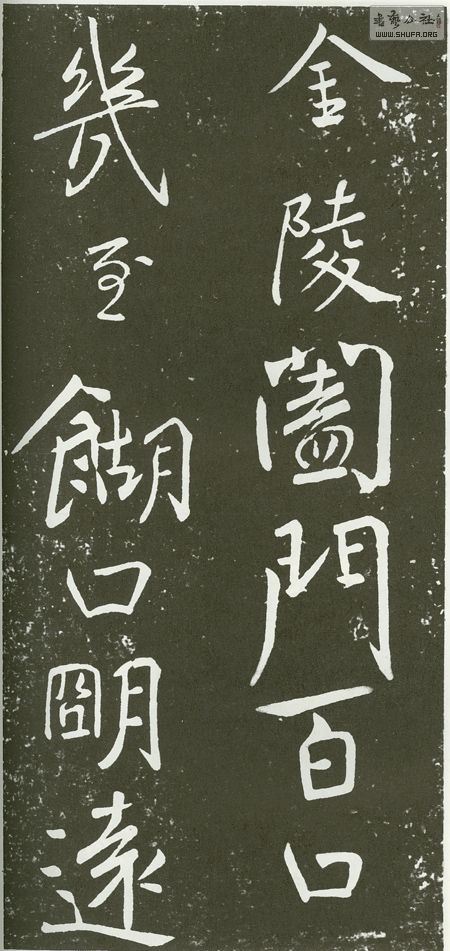 金陵闔門百口
幾至餬口朙遠
書藝公社
WWW.SHUFA.ORG